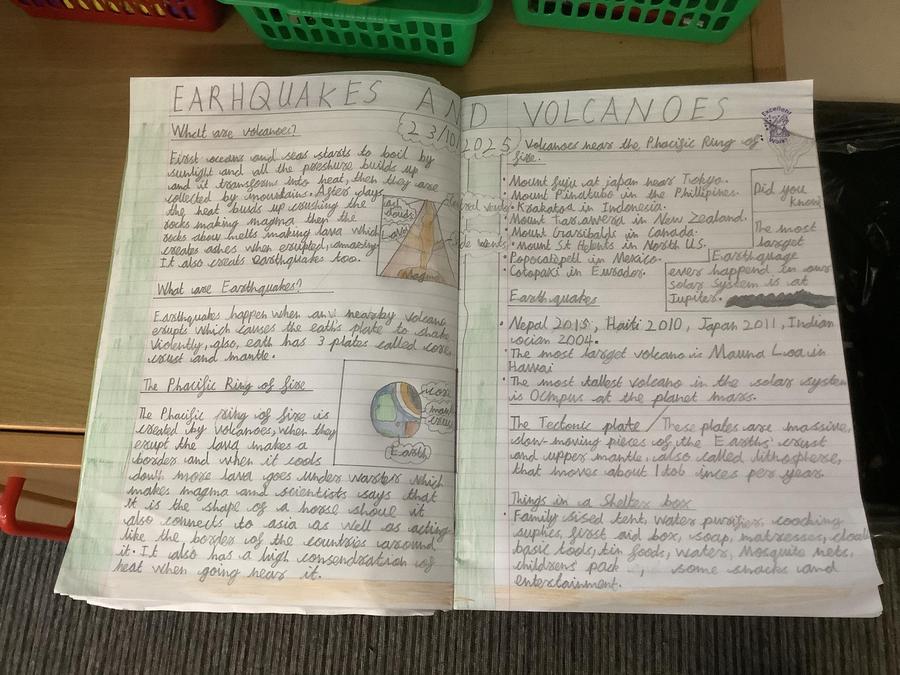 EARHQUAKES AND VOLCANOES
23/10/2025
What are volcanoes?
First oceans and seas starts to boil by
sunlight and all the preshure builds up
and it transforms into heat, then they are
collected by mountains. After days
the heat builds up crushing the
rocks making magma then the
rocks above melts making lava which
creates ashes when erupted, amazing
It also creats earthquakes too.
ash
clouds
Lava
Magma
What are Earthquakes?
Earthquakes happen when an nearby volcano
erupts which causes the eath's plate to shake
violently, also, eath has 3 plates called core,
crust and mantle.
The Phacific Ring of fire
The Phacific ring of fire is
created by volcanoes, when they
erupt the lava makes a
border and when it cools
down more lava goes under warter which
makes magma and scientists says that
it is the shape of a horse shoue it
also connects to asia as well as acting
like the border of the countries around
it. It also has a high consendration of
heat when going near it.
core
Earth
Excellent
Work!
Volcanoes near the Phacific Ring of
fire.
Mount fuju at japan near Tokyo.
Mount Pinatubo in the Phillipines.
Krakatoa in Indonesia.
Mount Tarawera in New Zealand.
Mount Garsibaldi in Canada.
Mount St Helents in North U.S.
Popocatepell in Mexico.
Cotopaxi in Ewrador.
Did you
know
The most
largest
Earthquage
ever happend in our
solar system is at
Jupiter.
Earthquakes
Nepal 2015, Haiti 2010, Japan 2011, Indian
ocian 2004.
The most largest volcano is Mauna Loa in
Hawai
The most tallest volcano in the solar system
is Olmpus at the planet mars.
The Tectonic plate / These plates are massive,
slow-moving pieces of the Earths' crust
and upper mantle, also called lithosphere,
that moves about 1 to 6 inces per year.
Things in a Shelter box
Family sised tent, water purifier, coocking
suplies, first aid box, soap, matresses,
basic tools, tin foods, water, Mosquite nets,
childrens' pack, some snacks and
entertainment.